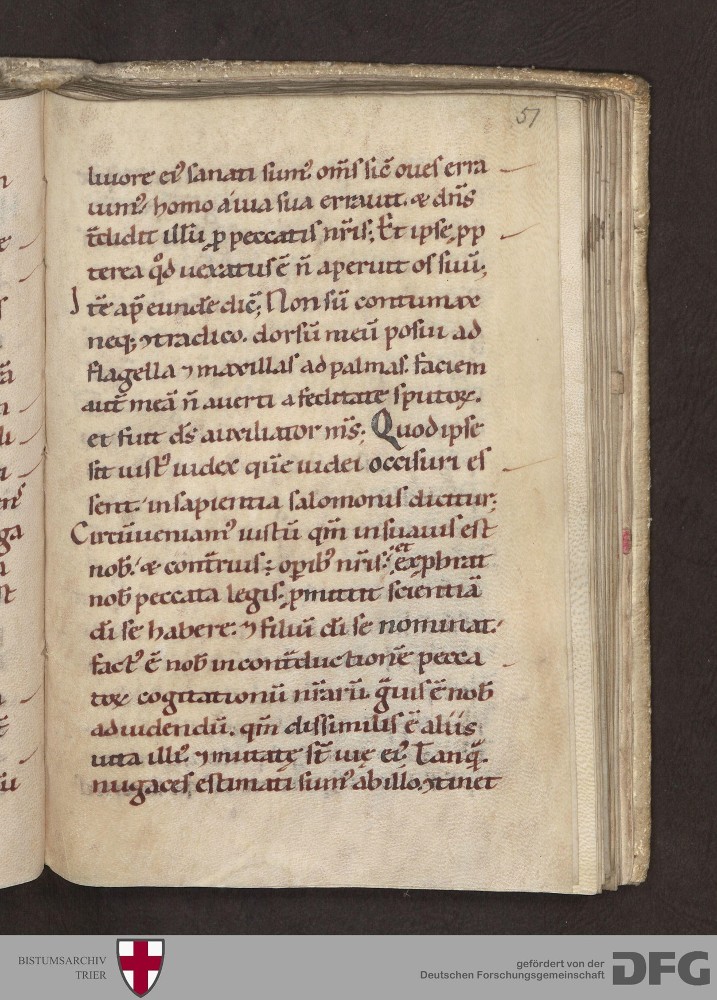 51
liuore ei᷒ sanati sum᷒ om̅s sic̅ oues erra
uim᷒. homo a uia sua errauit. & dn̅s
t̅didit illu̅ ꝓ peccatis nr̅is; Et ipse, pp
terea qd̊ uexatus e̅ n̅ aperuit os suu̅;
Ite̅ ap̅ eunde̅ dic̅; Non su̅ contumax
neq; ꝯtradico. dorsu̅ meu̅ posui ad
flagella ⁊ maxillas ad palmas. faciem
aut̅ mea̅ n̅ auerti a feditate sputoꝝ.
et fuit ds̅ auxiliator ms̅; Quod ipse
sit iust᷒ iudex que̅ iudei occisuri es
sent. in sapientia salomonis dicitur;
Circu̅ueniam᷒ iustu̅ qm̅ insuauis est
nob̅. & cont̅rius; opib᷒ nr̅is. et exp̱brat
nob̅ peccata legis, ꝓmittit scientia̅
di̅ se habere. ⁊ filiu̅ di̅ se nominat.
fact᷒ e̅ nob̅ in cont̅ductione̅ pecca
toꝝ cogitationu̅ nr̅aru̅. g̅uis e̅ nob̅
ad uidendu̅. qm̅ dissimilis e̅ aliis
uita illi᷒. ⁊ mutatę st̅ uię ei᷒. Tanq̅.
nugaces estimati sum᷒ ab illo, ꝯtinet
BISTUMSARCHIV
TRIER
gefördert von der
Deutschen Forschungsgemeinschaft
DFG